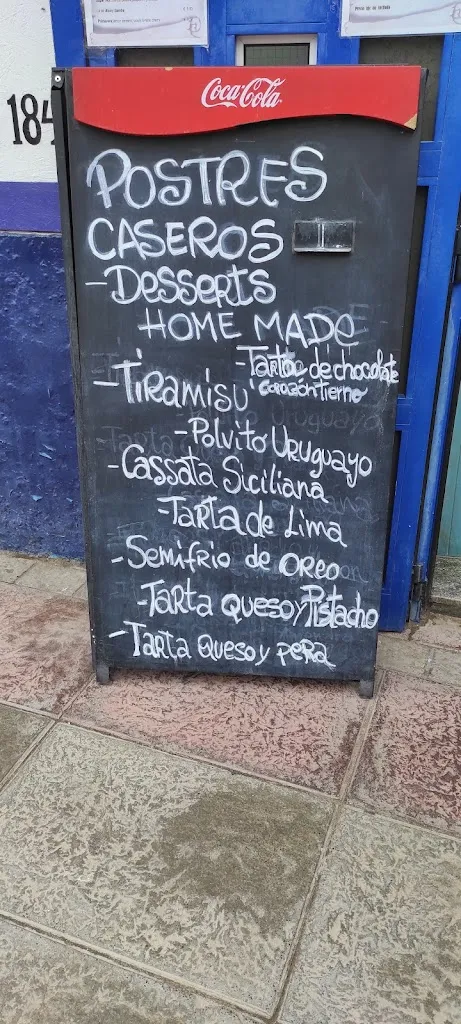 184
Coca-Cola
POSTRES
CASEROS
-Desserts
HOME MADE
-Tarta de chocolate
corazón tierno
-Tiramisú
-Polvito Uruguayo
-Cassata Siciliana
-Tarta de Lima
-Semifrio de OREO
-Tarta QUESO y Pistacho
-Tarta Queso y pera